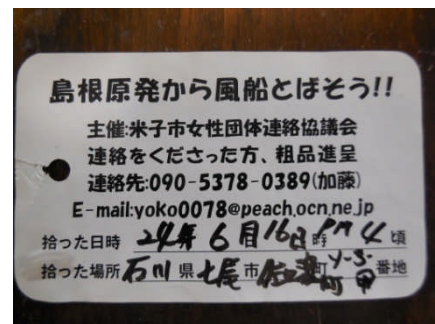 島根原発から風船とばそう!!
主催:米子市女性団体連絡協議会
連絡をくださった方、粗品進呈
連絡先:090-5378-0389(加藤)
E-mail:yoko0078@peach.ocn.ne.jp
拾った日時 24年6月16日時PM4頃
拾った場所 石川県七尾市 町 番地